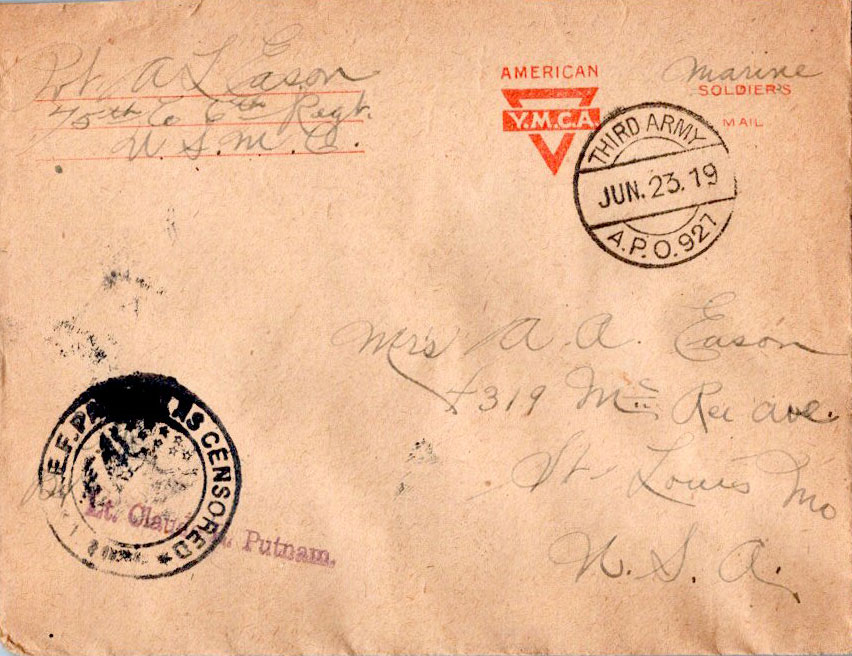 Pvt. A L Eason
75th Co 6th Regt.
U. S. M. C.
AMERICAN
Y.M.C.A
Marine
SOLDIER'S
MAIL
THIRD ARMY
JUN. 23. 19
A.P.O. 927
Mrs A. A. Eason
4319 Mc Ree ave.
St Louis Mo
U. S. A.
E.F. PA S CENSORED
Lt. Clau Putnam.